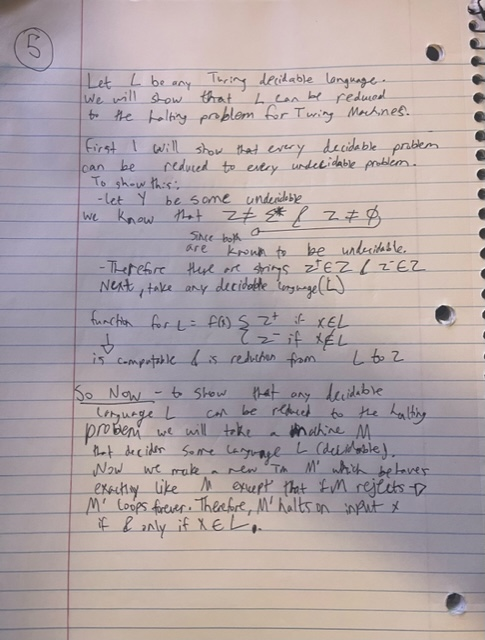 5
Let L be any Turing decidable language.
We will show that L can be reduced
to the halting problem for Turing Machines.
First I will show that every decidable problem
can be reduced to every undecidable problem.
To show this:
-let Y be some undecidable
we know that Z ≠ Σ* & Z ≠ ∅
Since both
are known to be undecidable.
-Therefore there are strings z⁺ ∈ Z & z⁻ ∈ Z
Next, take any decidable language (L)
function for L = f(x) { z⁺ if x ∈ L
{ z⁻ if x ∉ L
↓
is computable & is reduction from L to Z
So Now - to show that any decidable
language L can be reduced to the halting
problem we will take a machine M
that decides some language L (decidable).
Now we make a new TM M' which behaves
exactly like M except that if M rejects →
M' loops forever. Therefore, M' halts on input x
if & only if x ∈ L.